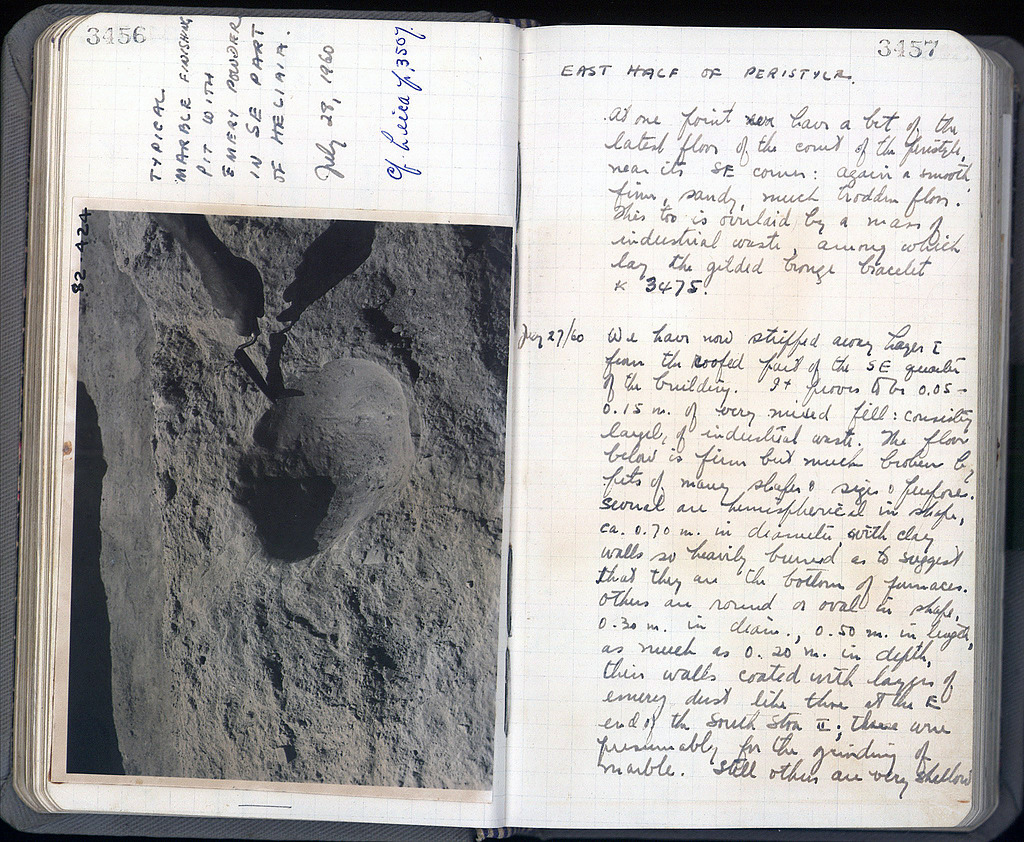 3456
TYPICAL
MARBLE FINISHING
PIT WITH
EMERY POWDER
IN SE PART
OF HELIAIA.
July 28, 1960
Cf. Leica p. 3507.
82-424
3457
EAST HALF OF PERISTYLE.
At one point we have a bit of the
latest floor of the court of the peristyle,
near its SE corner: again a smooth
firm, sandy, much trodden floor.
This too is overlaid by a mass of
industrial waste, among which
lay the gilded bronze bracelet
K 3475.
July 27/60
We have now stripped away Layer I
from the roofed part of the SE quarter
of the building. It proves to be 0.05-
0.15 m. of very mixed fill: consisting
largely of industrial waste. The floor
below is firm but much broken by
pits of many shapes & sizes & purposes.
Several are hemispherical in shape,
ca. 0.70 m. in diameter with clay
walls so heavily burned as to suggest
that they are the bottom of furnaces.
Others are round or oval in shape,
0.30 m. in diam., 0.50 m. in length,
as much as 0.20 m. in depth,
their walls coated with layers of
emery dust like those at the E
end of the South Stoa II; these were
presumably for the grinding of
marble. Still others are very shallow